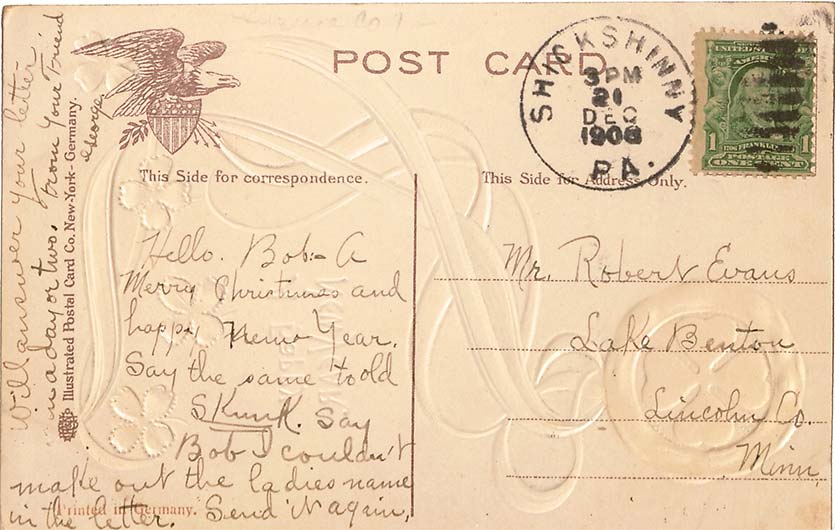 POST CARD
SHICKSHINNY
3 PM
21
DEC
1908
PA.
UNITED STATES OF
AMERICA
1 1
FRANKLIN
POSTAGE
ONE CENT
This Side for correspondence.
This Side for Address Only.
Hello. Bob:- A
Merry Christmas and
happy New Year.
Say the same to old
Skunk. Say
Bob I couldn't
make out the ladies name
in the letter. Send it again.
Will answer your letter
in a day or two. From Your Friend
George
Mr. Robert Evans
Lake Benton
Lincoln Co.
Minn
Illustrated Postal Card Co. New-York - Germany.
Printed in Germany.